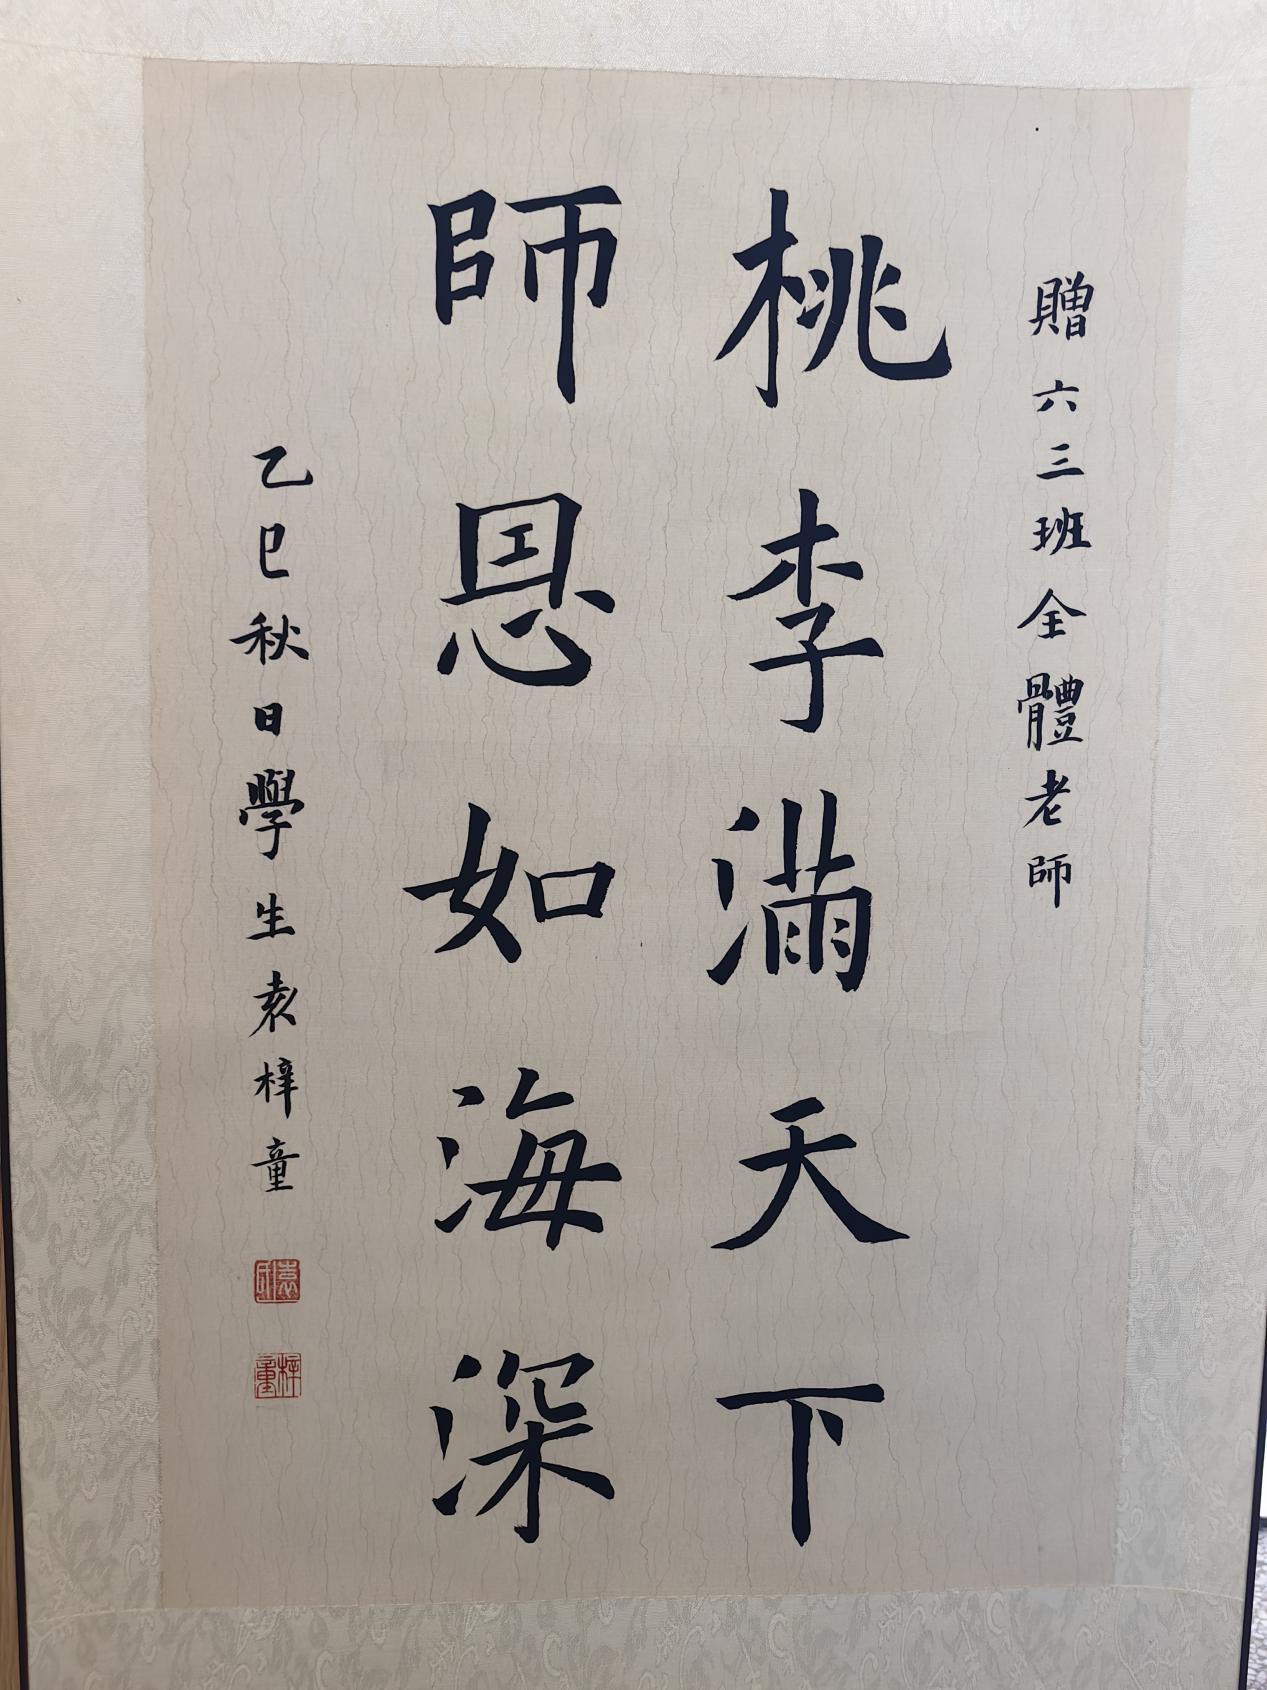 贈六三班全體老師
桃李滿天下
師恩如海深
乙巳秋日學生袁梓童
袁氏
梓童